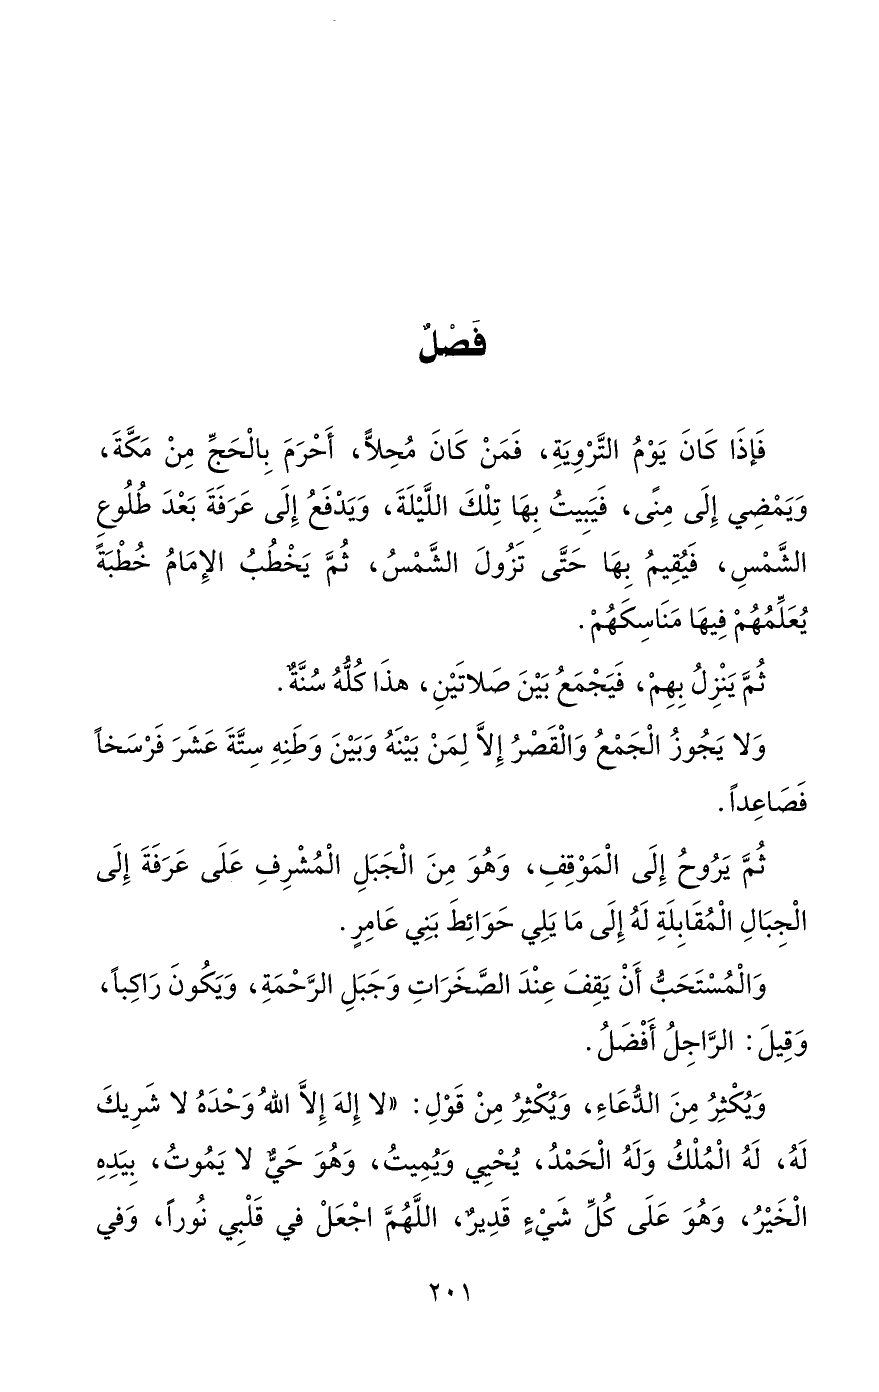 فَصْلٌ
فَإِذَا كَانَ يَوْمُ التَّرْوِيَةِ، فَمَنْ كَانَ مُحِلاًّ، أَحْرَمَ بِالْحَجِّ مِنْ مَكَّةَ،
وَيَمْضِي إِلَى مِنًى، فَيَبِيتُ بِهَا تِلْكَ اللَّيْلَةَ، وَيَدْفَعُ إِلَى عَرَفَةَ بَعْدَ طُلُوعِ
الشَّمْسِ، فَيُقِيمُ بِهَا حَتَّى تَزُولَ الشَّمْسُ، ثُمَّ يَخْطُبُ الإِمَامُ خُطْبَةً
يُعَلِّمُهُمْ فِيهَا مَنَاسِكَهُمْ.
ثُمَّ يَنْزِلُ بِهِمْ، فَيَجْمَعُ بَيْنَ صَلاتَيْنِ، هذَا كُلُّهُ سُنَّةٌ.
وَلا يَجُوزُ الْجَمْعُ وَالْقَصْرُ إِلاَّ لِمَنْ بَيْنَهُ وَبَيْنَ وَطَنِهِ سِتَّةَ عَشَرَ فَرْسَخاً
فَصَاعِداً.
ثُمَّ يَرُوحُ إِلَى الْمَوْقِفِ، وَهُوَ مِنَ الْجَبَلِ الْمُشْرِفِ عَلَى عَرَفَةَ إِلَى
الْجِبَالِ الْمُقَابِلَةِ لَهُ إِلَى مَا يَلِي حَوَائِطَ بَنِي عَامِرٍ.
وَالْمُسْتَحَبُّ أَنْ يَقِفَ عِنْدَ الصَّخَرَاتِ وَجَبَلِ الرَّحْمَةِ، وَيَكُونَ رَاكِباً،
وَقِيلَ: الرَّاجِلُ أَفْضَلُ.
وَيُكْثِرُ مِنَ الدُّعَاءِ، وَيُكْثِرُ مِنْ قَوْلِ: «لا إِلهَ إِلاَّ اللهُ وَحْدَهُ لا شَرِيكَ
لَهُ، لَهُ الْمُلْكُ وَلَهُ الْحَمْدُ، يُحْيِي وَيُمِيتُ، وَهُوَ حَيٌّ لا يَمُوتُ، بِيَدِهِ
الْخَيْرُ، وَهُوَ عَلَى كُلِّ شَيْءٍ قَدِيرٌ، اللَّهُمَّ اجْعَلْ في قَلْبِي نُوراً، وَفي
٢٠١